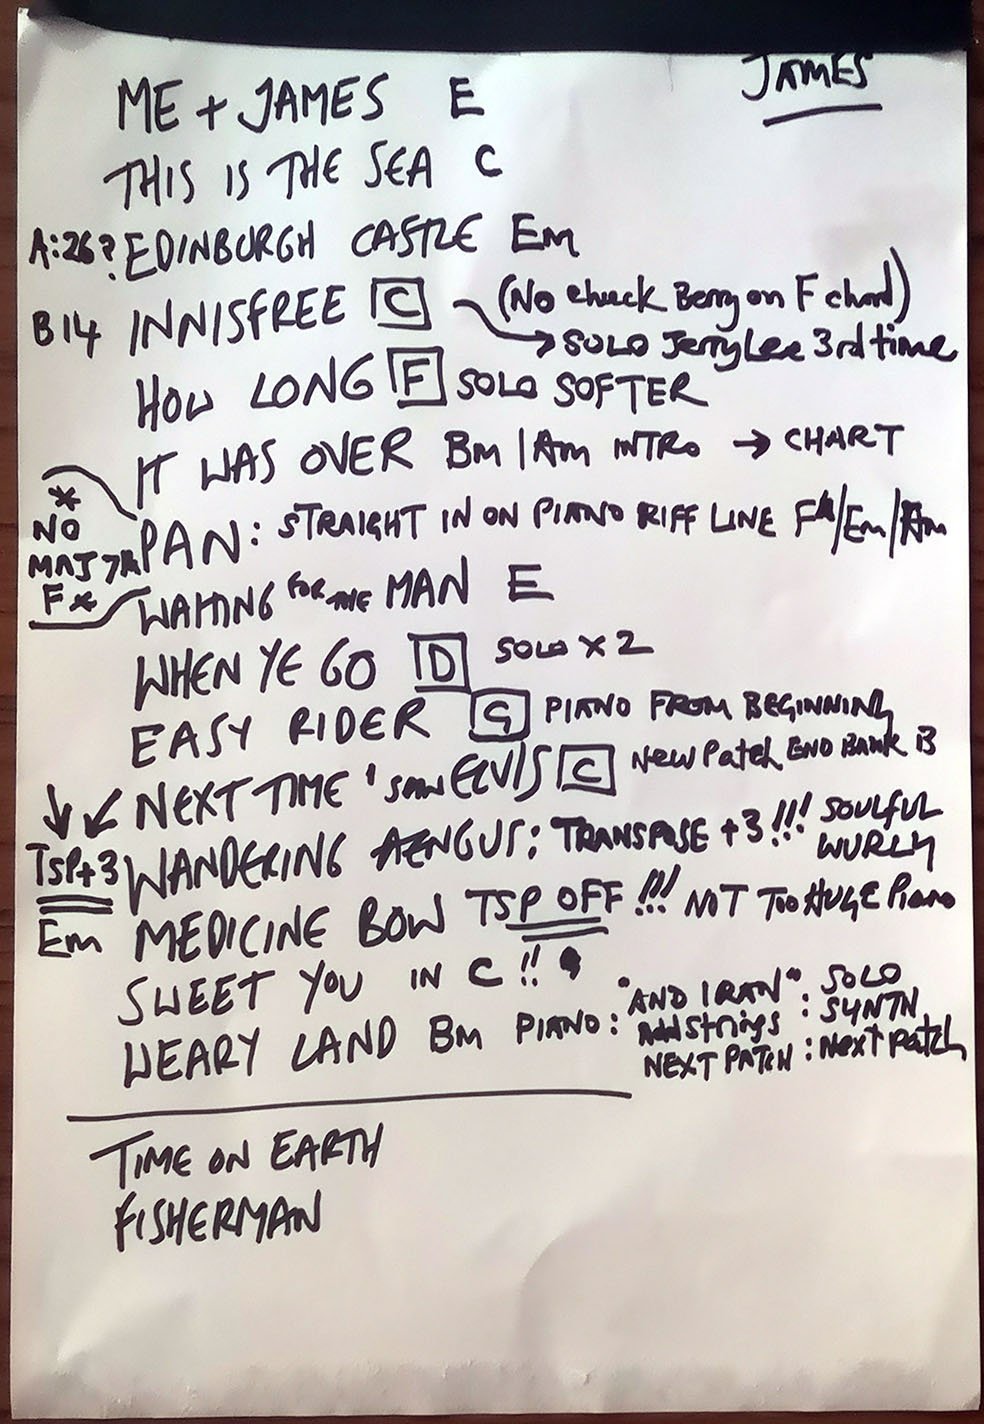 JAMES
ME + JAMES E
THIS IS THE SEA C
A:26? EDINBURGH CASTLE Em
B14 INNISFREE C (No Chuck Berry on F chord)
→ SOLO Jerry Lee 3rd time
HOW LONG F SOLO SOFTER
IT WAS OVER Bm | Am INTRO → CHART
* NO MAJ 7th F *
PAN: STRAIGHT IN ON PIANO RIFF LINE /Em/Am
WAITING FOR THE MAN E
WHEN YE GO D SOLO X 2
EASY RIDER G PIANO FROM BEGINNING
NEXT TIME I SAW ELVIS C New Patch END BANK B
TSP+3 WANDERING AENGUS: TRANSPOSE +3!!! SOULFUL WURLY
Em MEDICINE BOW TSP OFF!!! NOT TOO HUGE Piano
SWEET YOU IN C!!
WEARY LAND Bm PIANO: "AND I RAN": SOLO
Add strings: SYNTH
NEXT PATCH: Next patch
TIME ON EARTH
FISHERMAN